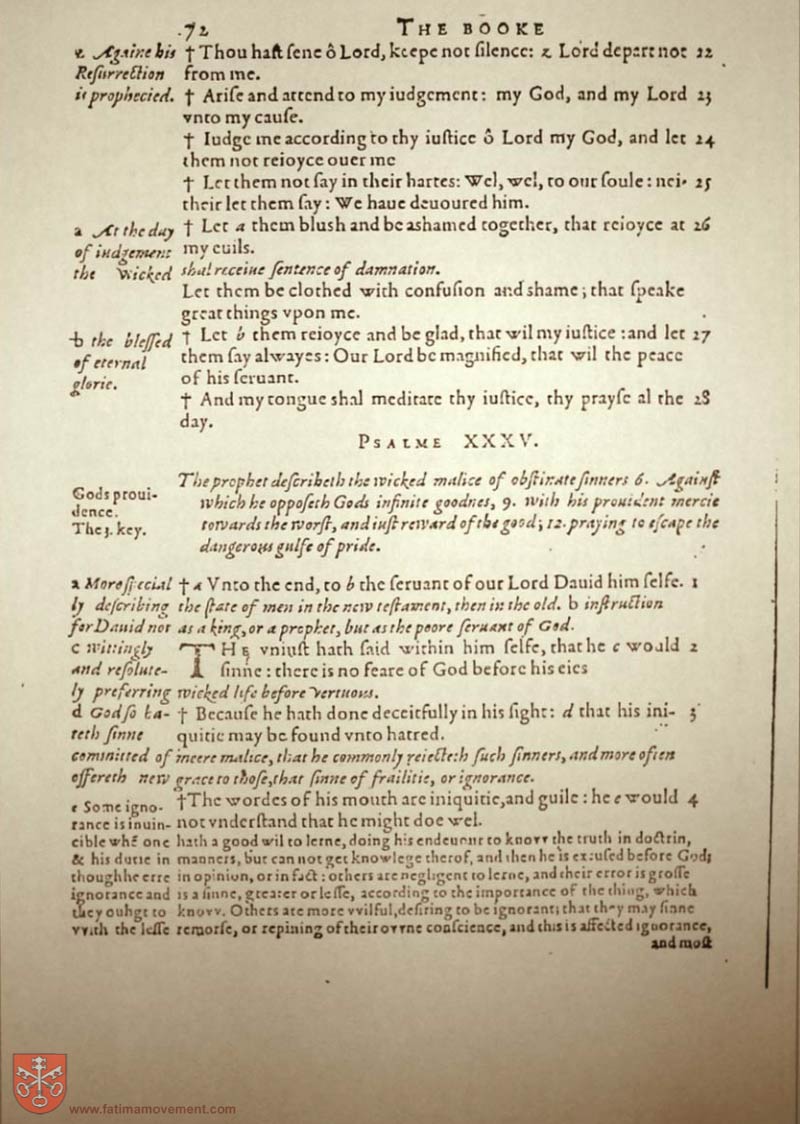 .72 THE BOOKE
z Againe his † Thou hast sene ô Lord, keepe not silence: z Lord depart not 22
Resurrection from me.
is prophecied. † Arise and attend to my iudgement: my God, and my Lord 23
vnto my cause.
† Iudge me according to thy iustice ô Lord my God, and let 24
them not reioyce ouer me
† Let them not say in their hartes: Wel, wel, to our soule: nei- 25
their let them say: We haue deuoured him.
a At the day † Let a them blush and be ashamed together, that reioyce at 26
of iudgement my euils.
the Wicked shal receiue sentence of damnation.
Let them be clothed with confusion and shame; that speake
great things vpon me.
b the blessed † Let b them reioyce and be glad, that wil my iustice: and let 27
of eternal them say alwayes: Our Lord be magnified, that wil the peace
glorie. of his seruant.
† And my tongue shal meditate thy iustice, thy prayse al the 28
day.
PSALME XXXV.
The prophet describeth the wicked malice of obstinate sinners 6. Against
Gods proui- which he opposeth Gods infinite goodnes, 9. with his prouident mercie
dence.
The 3. key. towards the worst, and iust reward of the good; 12. praying to escape the
dangerous gulfe of pride.
a More special † a Vnto the end, to b the seruant of our Lord Dauid him selfe. 1
ly describing the state of men in the new testament, then in the old. b instruction
for Dauid not as a king, or a prophet, but as the poore seruant of God.
c wittingly THE vniust hath said within him selfe, that he c would 2
and resolute- sinne: there is no feare of God before his eies
ly preferring wicked life before vertuous.
d God so ha- † Because he hath done deceitfully in his sight: d that his ini- 3
teth sinne quitie may be found vnto hatred.
committed of meere malice, that he commonly reiecteth such sinners, and more often
offereth new grace to those, that sinne of frailitie, or ignorance.
e Some igno- † The wordes of his mouth are iniquitie, and guile: he e would 4
rance is inuin- not vnderstand that he might doe wel.
cible whē one hath a good wil to lerne, doing his endeuour to know the truth in doctrin,
& his dutie in manners, but can not get knowlege therof, and then he is excused before God;
though he erre in opinion, or in fact: others are negligent to lerne, and their error is grosse
ignorance and is a sinne, greater or lesse, according to the importance of the thing, which
they ouhgt to know. Others are more wilful, desiring to be ignorant; that they may sinne
with the lesse remorse, or repining of their owne conscience, and this is affected ignorance,
and most
www.fatimamovement.com